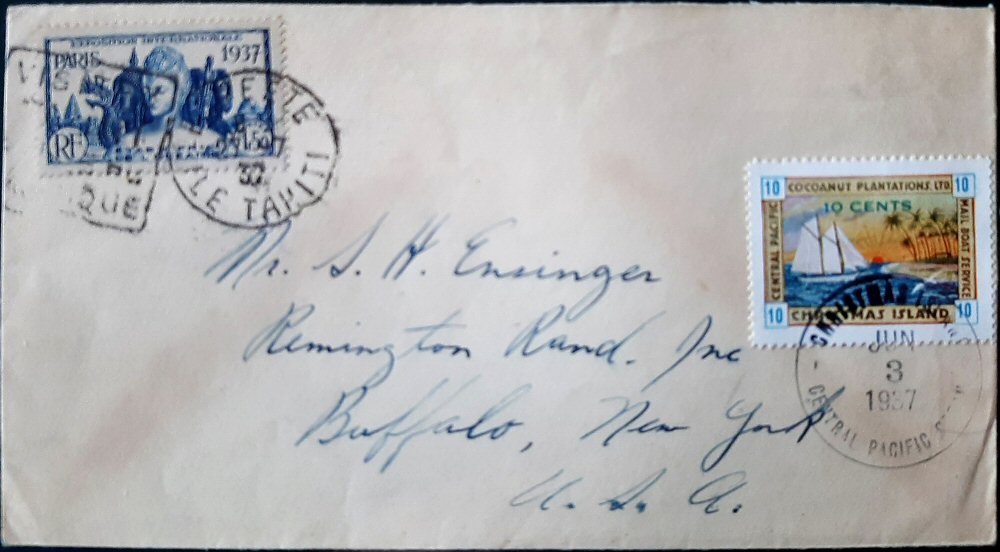 EXPOSITION INTERNATIONALE
PARIS 1937
RF 1F50
PAPEETE
ILE TAHITI
10 COCOANUT PLANTATIONS. LTD. 10
10 CENTS
CENTRAL PACIFIC
MAIL BOAT SERVICE
10 CHRISTMAS ISLAND 10
CHRISTMAS ISLAND
JUN
3
1937
CENTRAL PACIFIC
Mr. S. H. Ensinger
Remington Rand. Inc
Buffalo, New York
U. S. A.